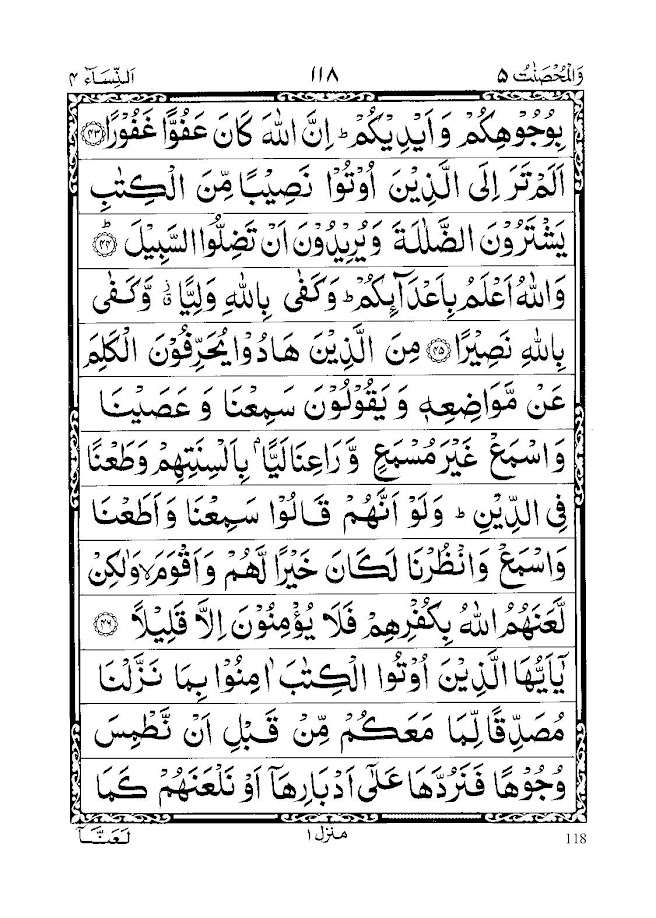 وَالْمُحْصَنٰتُ ۵ ۱۱۸ اَلنِّسَآء ۴
بِوُجُوْهِكُمْ وَ اَيْدِيْكُمْ ؕ اِنَّ اللّٰهَ كَانَ عَفُوًّا غَفُوْرًا ﴿۴۳﴾
اَلَمْ تَرَ اِلَى الَّذِيْنَ اُوْتُوْا نَصِيْبًا مِّنَ الْكِتٰبِ
يَشْتَرُوْنَ الضَّلٰلَةَ وَيُرِيْدُوْنَ اَنْ تَضِلُّوا السَّبِيْلَ ؕ ﴿۴۴﴾
وَاللّٰهُ اَعْلَمُ بِاَعْدَآىِٕكُمْ ؕ وَكَفٰى بِاللّٰهِ وَلِيًّا ٭ۙ وَّكَفٰى
بِاللّٰهِ نَصِيْرًا ﴿۴۵﴾ مِنَ الَّذِيْنَ هَادُوْا يُحَرِّفُوْنَ الْكَلِمَ
عَنْ مَّوَاضِعِهٖ وَ يَقُوْلُوْنَ سَمِعْنَا وَ عَصَيْنَا
وَ اسْمَعْ غَيْرَ مُسْمَعٍ وَّ رَاعِنَا لَيًّۢا بِاَلْسِنَتِهِمْ وَطَعْنًا
فِى الدِّيْنِ ؕ وَلَوْ اَنَّهُمْ قَالُوْا سَمِعْنَا وَ اَطَعْنَا
وَ اسْمَعْ وَانْظُرْنَا لَكَانَ خَيْرًا لَّهُمْ وَ اَقْوَمَ ۙ وَلٰكِنْ
لَّعَنَهُمُ اللّٰهُ بِكُفْرِهِمْ فَلَا يُؤْمِنُوْنَ اِلَّا قَلِيْلًا ﴿۴۶﴾
يٰۤاَيُّهَا الَّذِيْنَ اُوْتُوا الْكِتٰبَ اٰمِنُوْا بِمَا نَزَّلْنَا
مُصَدِّقًا لِّمَا مَعَكُمْ مِّنْ قَبْلِ اَنْ نَّطْمِسَ
وُجُوْهًا فَنَرُدَّهَا عَلٰۤى اَدْبَارِهَاۤ اَوْ نَلْعَنَهُمْ كَمَا
118 منزل ۱ لَعَنَّاۤ